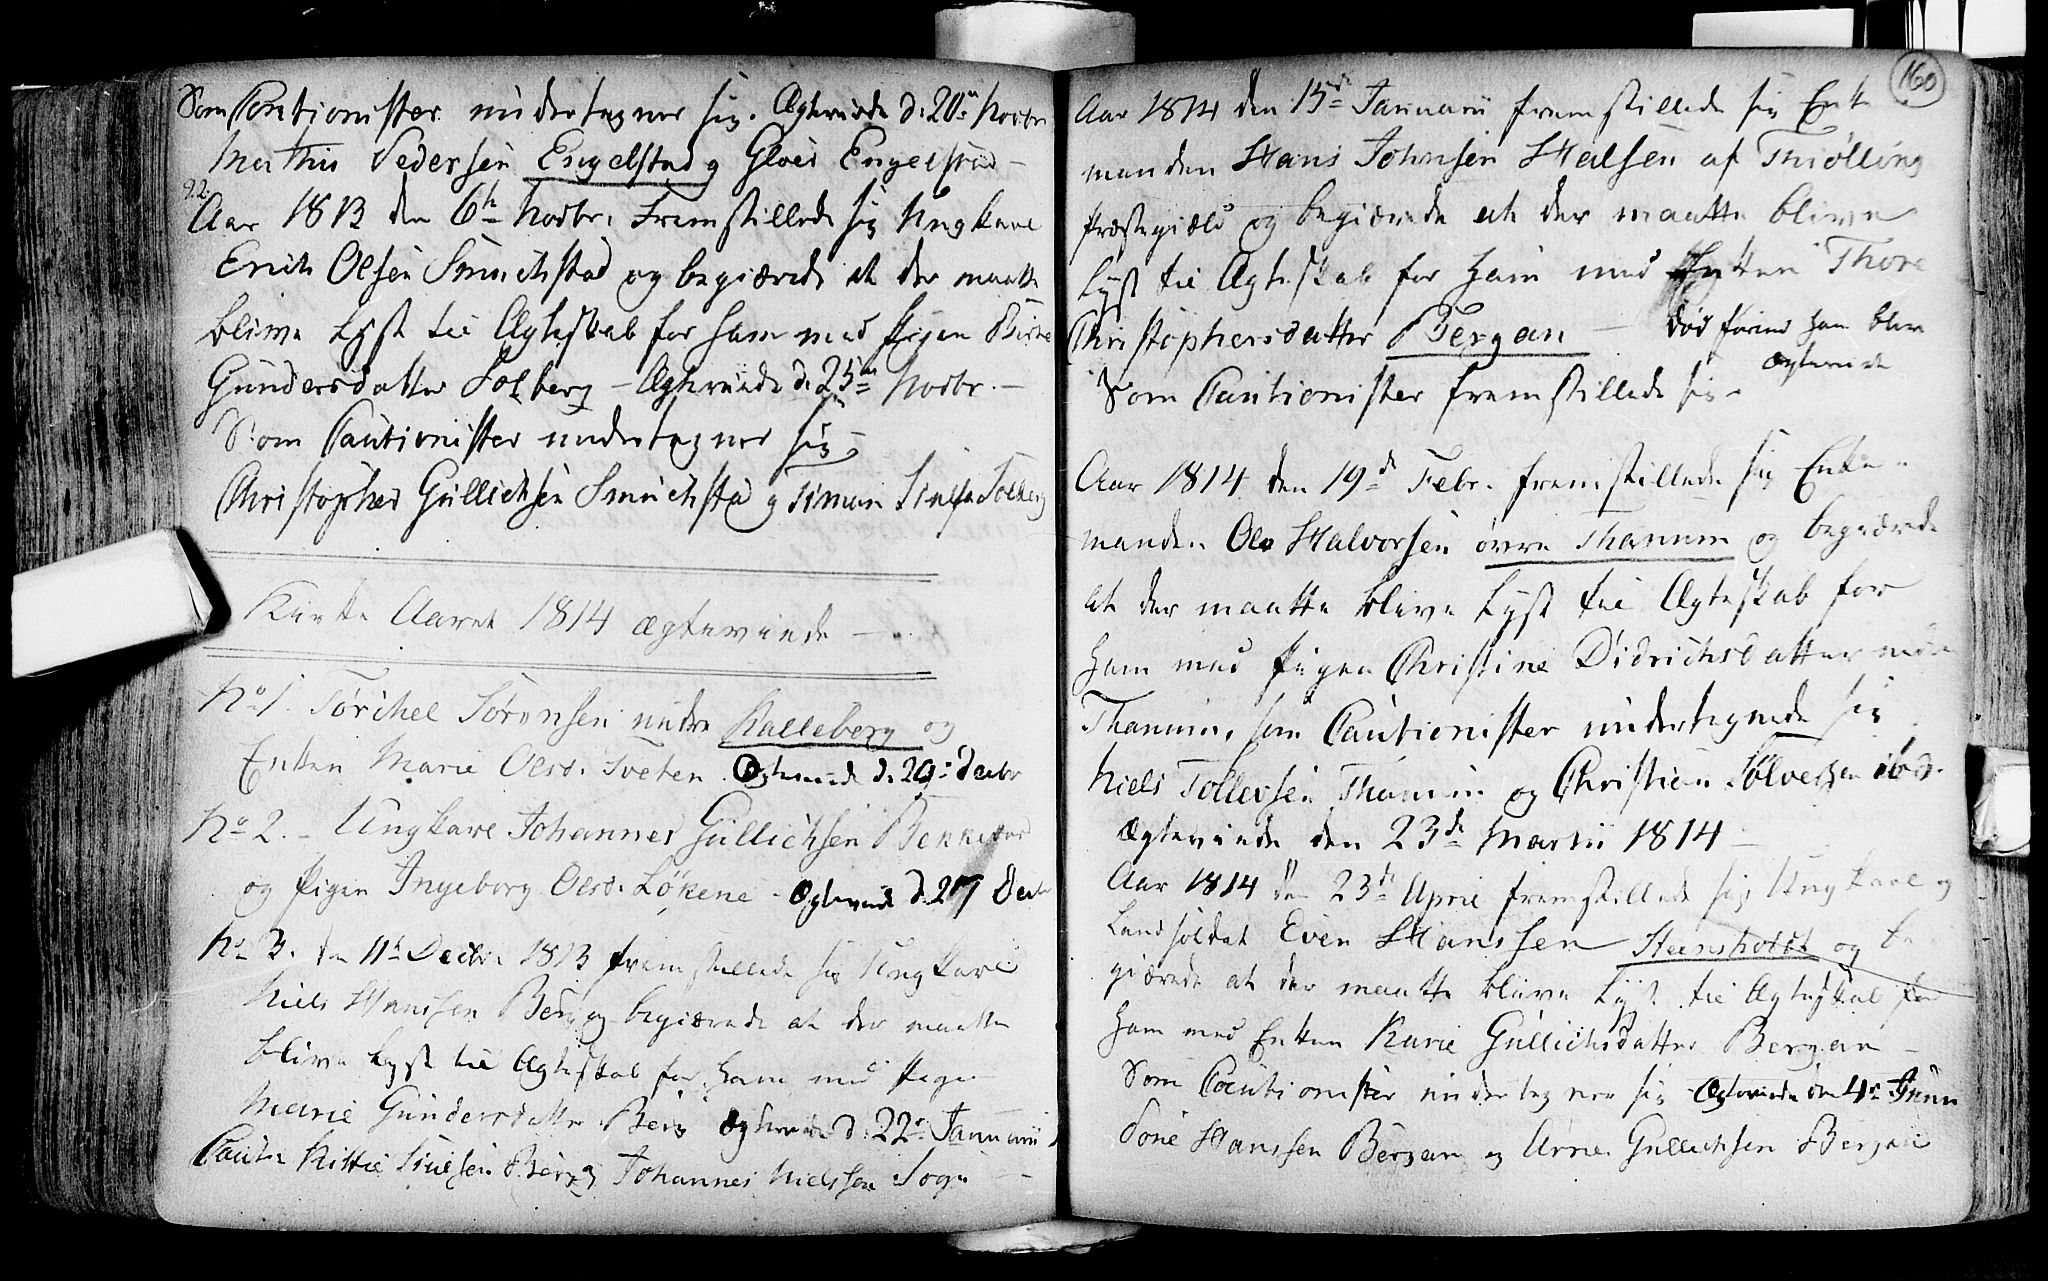 Som Cautionister undertegner sig. Ægteviede d. 20de Novbr
Mathis Pedersen Engelstad og Gloer Engelstad
22. Aar 1813 den 6te Novbr. Fremstillede sig Ungkarl
Erich Olsen Smuchstad og begiærede at der maatte
blive Lyst til Ægteskab for ham med Pigen
Gundersdatter Solberg – Ægteviede d. 25de Novbr. –
Som Cautionister undertegner sig –
Christopher Gullichsen Smuchstad og Simon Solberg
Aaret 1814 ægteviede –
No 1. Torchel Sørensen nedre Kalleberg og
Enken Marie Olsd. Tveten. Ægteviede d. 29de Decbr
No 2. – Ungkarl Johannes Gullichsen
og Pigen Ingeborg Olsd. Løkene – Ægteviede d. 27 Decbr
No 3. den 11te Decbr. 1813 fremstillede sig Ungkarl
Niels Hanssen Berg og begiærede at der maatte
blive Lyst til Ægteskab for ham med Pigen
Marie Gundersdatter Berg Ægteviede d. 22de Januarii
Cauti: Kittil Berg og Johannes Nielssen
160
Aar 1814 den 15de Januarii fremstillede sig Enke
manden Hans Johnsen Halsen af Thiølling
Præstegield og begiærede at der maatte blive
Lyst til Ægteskab for ham med Enken Thore
Christophersdatter Bergan – død førend ham blev
Ægteviede
Som Cautionister fremstillede sig –
Aar 1814 den 19de Febr. fremstillede sig Enke-
manden Ole Halvorsen øvre Thanum og begiærede
at der maatte blive Lyst til Ægteskab for
ham med Pigen Christine Didrichsdatter nedre
Thanum, som Cautionister undertegnede sig
Niels Tollevsen Thanum og Christian Sølversen ibd.
Ægteviede den 23de Martii 1814 –
Aar 1814 den 23de April fremstillede sig Ungkarl og
Landsoldat Even Hanssen Steensholdt og be
giærede at der maatte blive Lyst til Ægteskab for
ham med Enken Karie Gullichsdatter Bergan –
Som Cautionister undertegner sig Ægteviede den 4de Junii
Hanssen Bergan og Arne Gullichsen Bergan